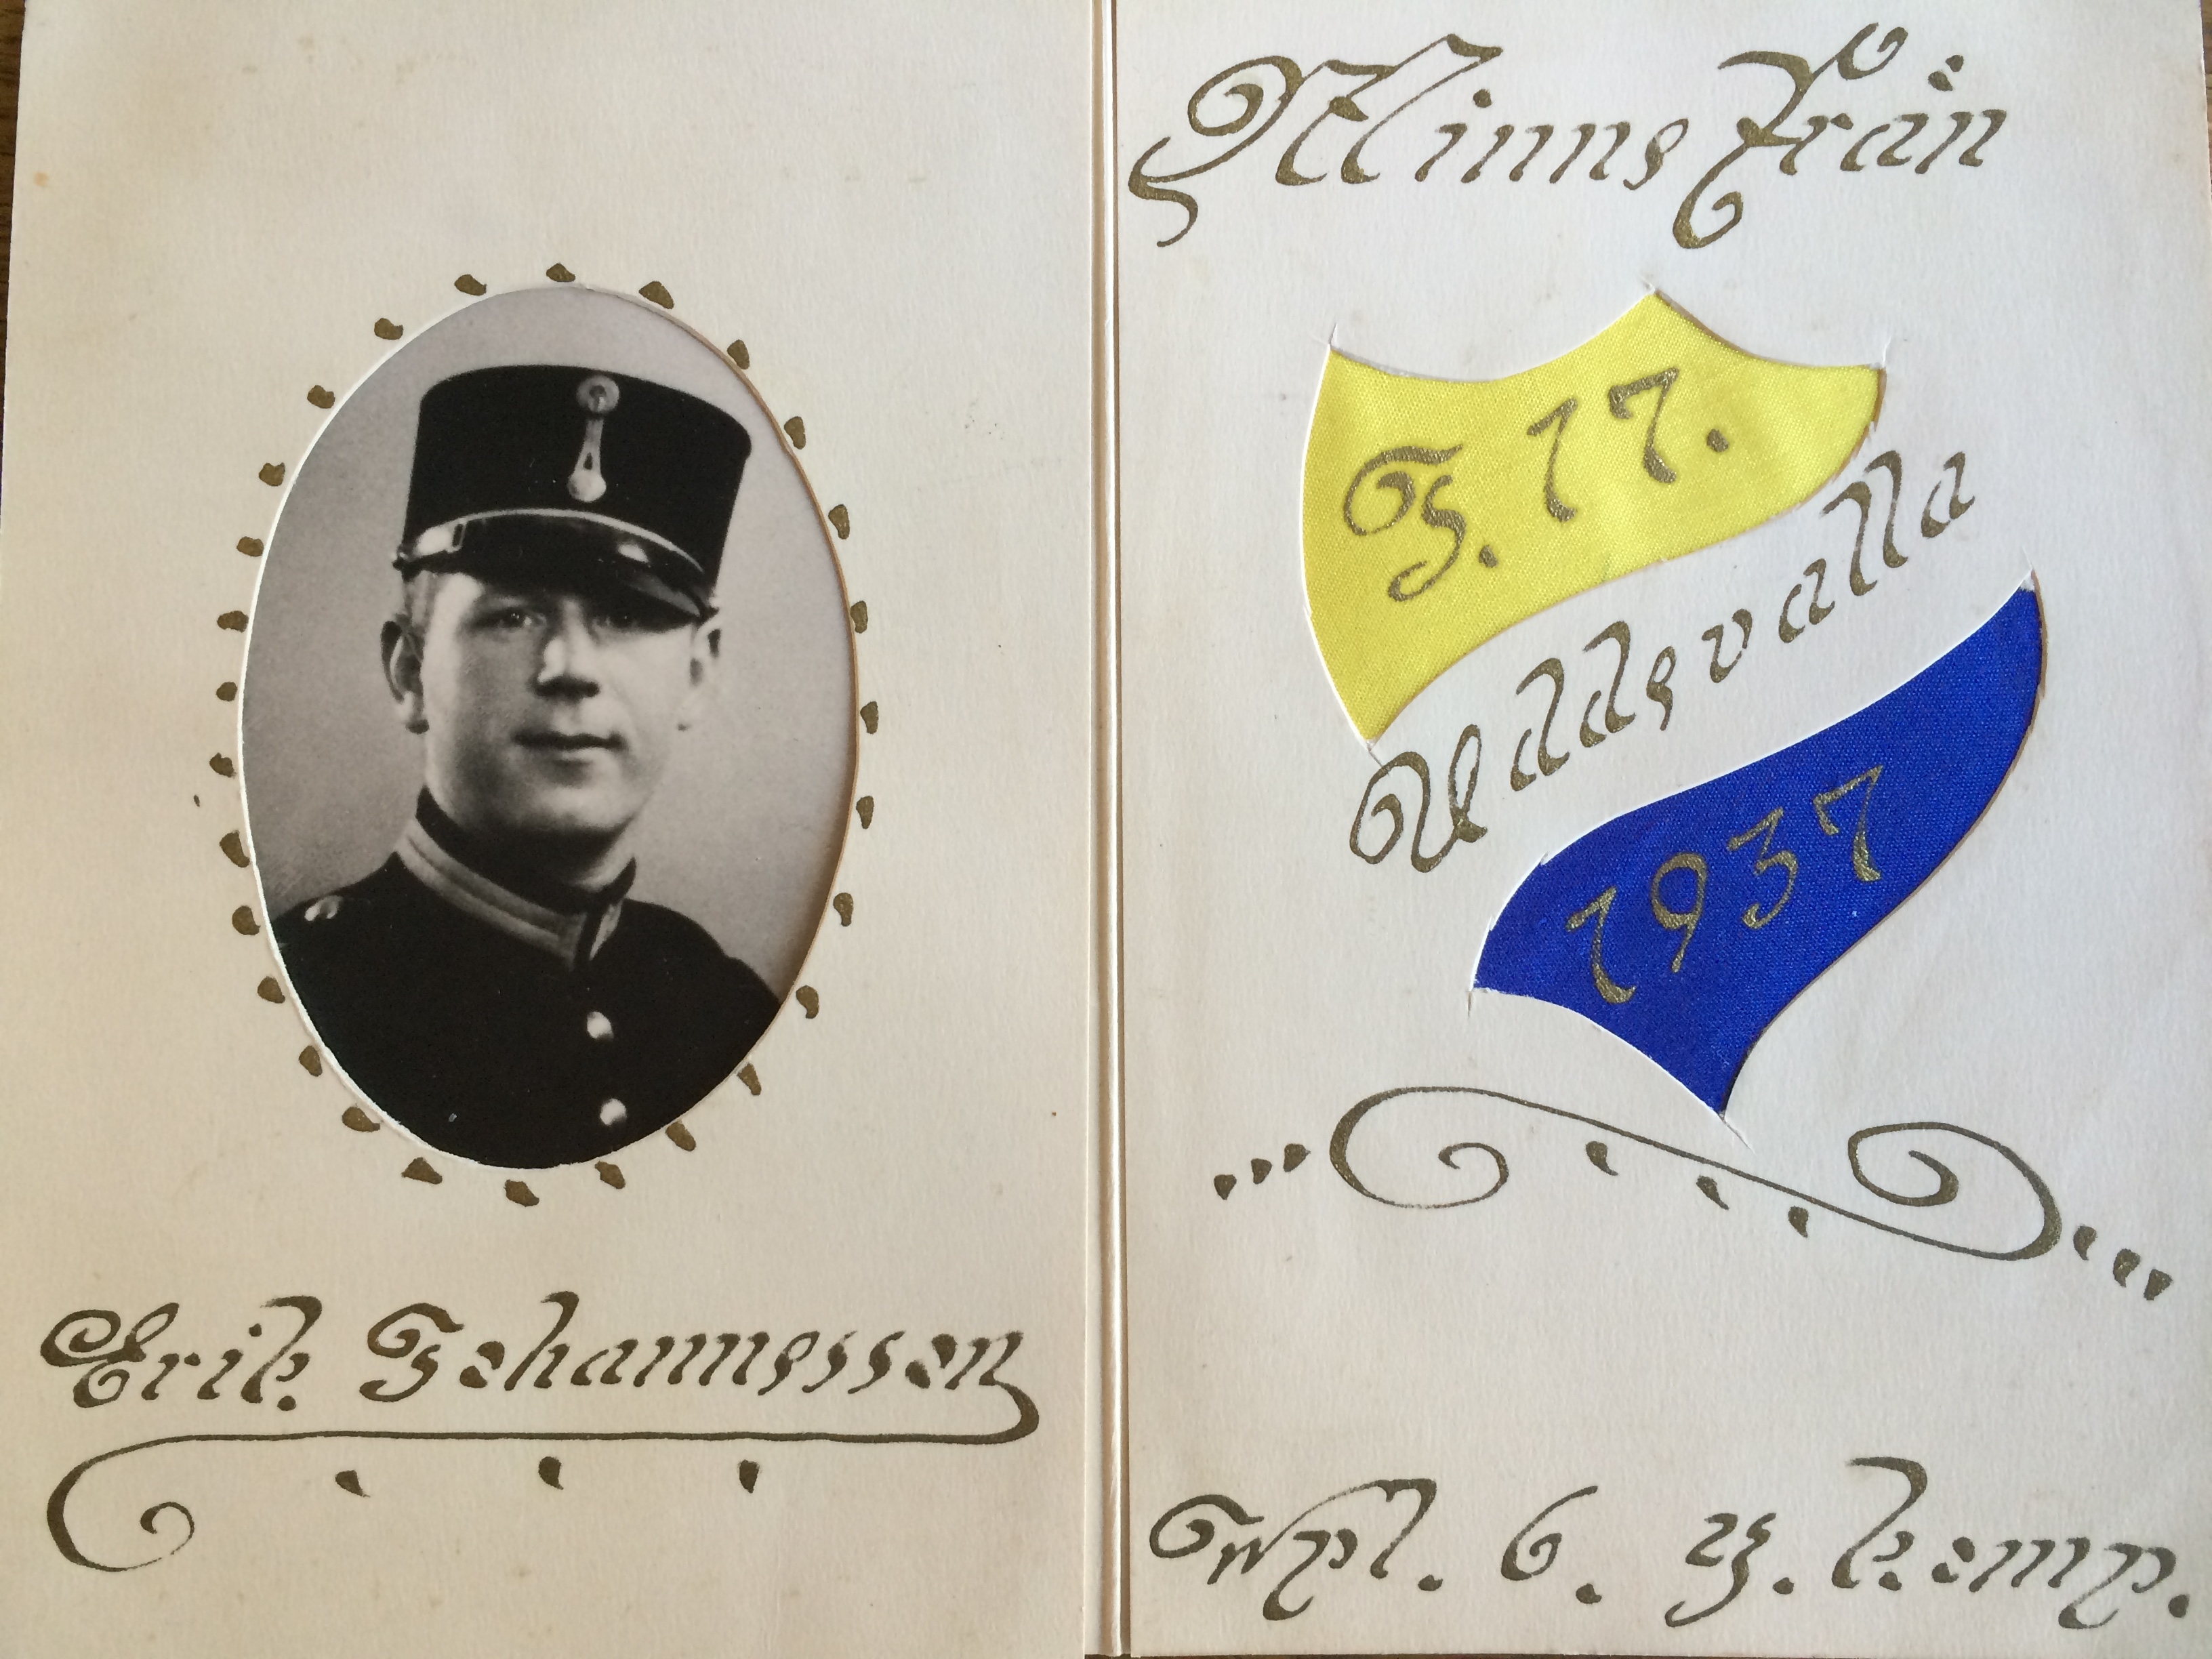 Erik Johannesson
Minne från
I. 17.
Uddevalla
1937
Vpl. 6. komp.